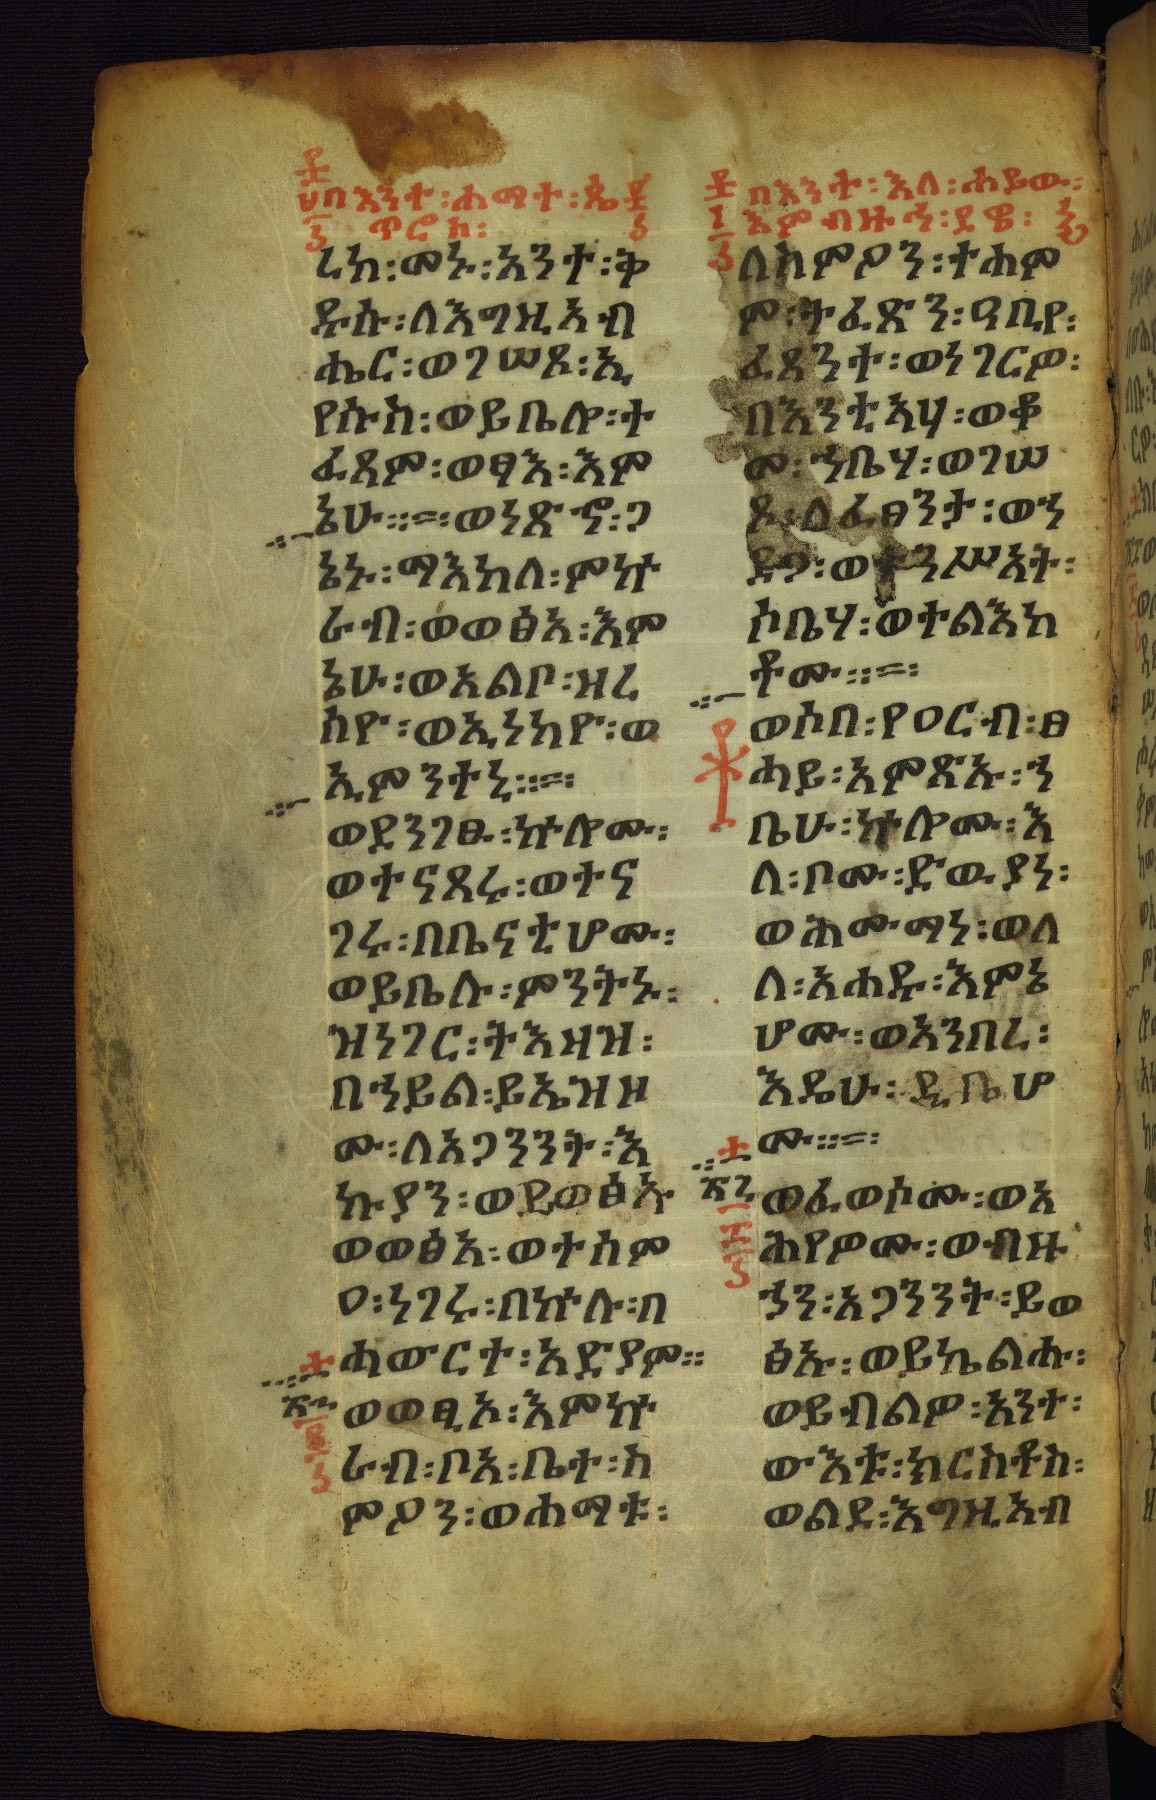 በእንተ፡ሐማተ፡ጴ
ጥሮስ፡
ሬከ፡መኑ፡አንተ፡ቅ
ዱሱ፡ለእግዚአብ
ሔር፡ወገሠጾ፡ኢ
የሱስ፡ወይቤሎ፡ተ
ፈጸም፡ወፃእ፡እም
ኔሁ።=፡ወነጽኆ፡ጋ
ኔኑ፡ማእከለ፡ምኵ
ራብ፡ወወፅአ፡እም
ኔሁ፡ወአልቦ፡ዘረ
ሰዮ፡ወኢነከዮ፡ወ
ኢምንተኒ።=፡
ወደንገፁ፡ኵሎሙ፡
ወተናጸሩ፡ወተና
ገሩ፡በቤናቲሆሙ፡
ወይቤሉ፡ምንትኑ፡
ዝነገር፡ትእዛዝ፡
በኀይል፡ይኤዝዞ
ሙ፡ለአጋንንት፡እ
ኩያን፡ወይወፅኡ
ወወፅአ፡ወተሰም
ዐ፡ነገሩ፡በኵሉ፡በ
ሓውርተ፡አድያም።
ወወፂኦ፡እምኵ
ራብ፡ቦአ፡ቤተ፡ስ
ምዖን፡ወሐማቱ፡
በእንተ፡እለ፡ሐይወ፡
እምብዙኅ፡ደዌ፡
ለስምዖን፡ተሐም
ም፡ትፈጽን፡ዓቢየ፡
ፈጸንተ፡ወነገርዎ፡
በእንቲአሃ፡ወቆ
መ፡ኀቤሃ፡ወገሠ
ጾ፡ለፈፀንታ፡ወኀ
ደጋ፡ወተንሥአት፡
ሶቤሃ፡ወተልእከ
ቶሙ።=፡
ወሶበ፡የዐርብ፡ፀ
ሓይ፡አምጽኡ፡ኀ
ቤሁ፡ኵሎሙ፡እ
ለ፡ቦሙ፡ድዉያነ፡
ወሕሙማነ፡ወለ
ለ፡አሐዱ፡እምኔ
ሆሙ፡ወአንበረ፡
እዴሁ፡ዲቤሆ
ሙ።=፡
ወፈወሶሙ፡ወአ
ሕየዎሙ፡ወብዙ
ኃን፡አጋንንት፡ይወ
ፅኡ፡ወይኬልሑ፡
ወይብልዎ፡አንተ፡
ውእቱ፡ክርስቶስ፡
ወልደ፡እግዚአብ